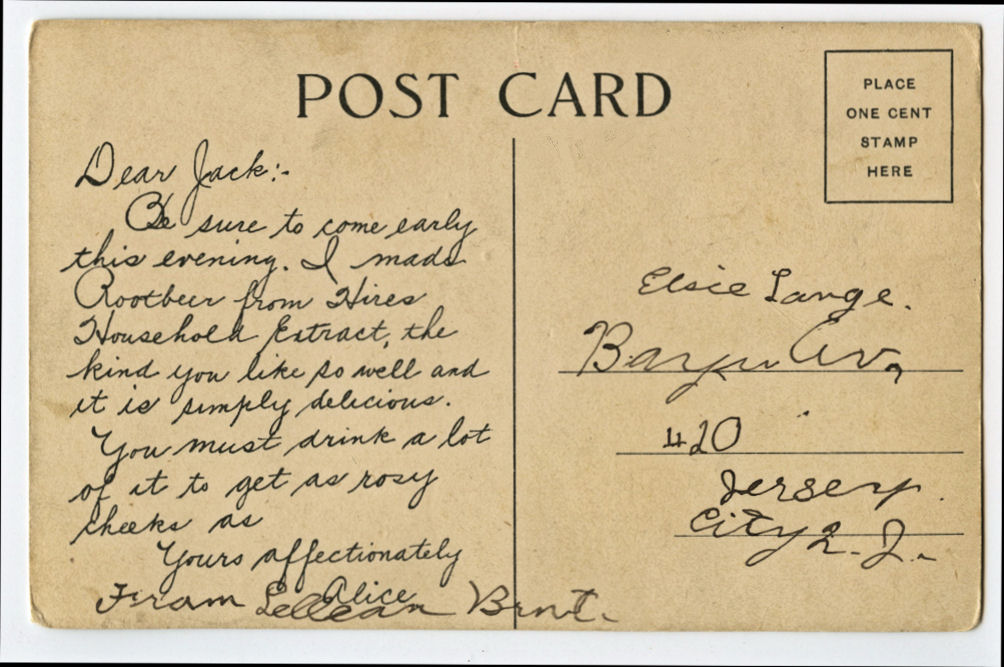 POST CARD
PLACE
ONE CENT
STAMP
HERE
Dear Jack:-
Be sure to come early
this evening. I made
Rootbeer from Hires
Household Extract, the
kind you like so well and
it is simply delicious.
You must drink a lot
of it to get as rosy
cheeks as
Yours affectionately
Alice
From Brnt.
Elsie Lange.
Av,
420
Jersey
City